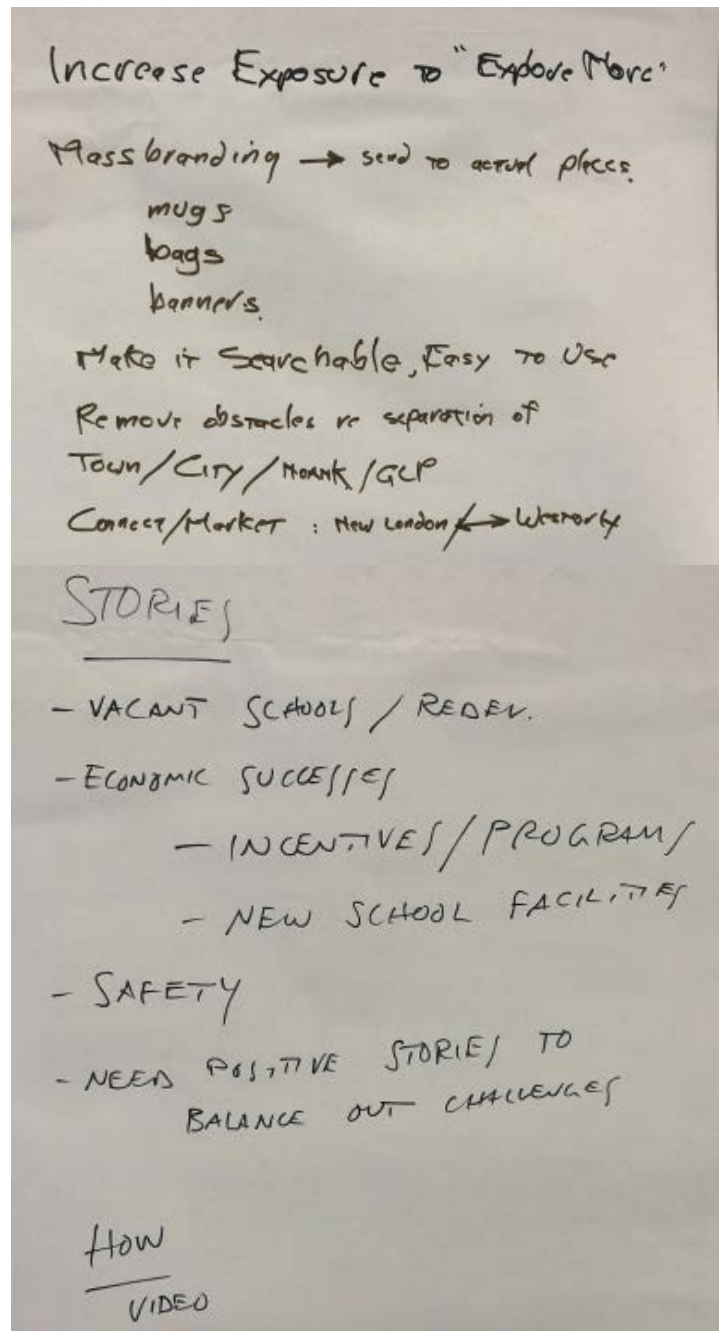 Increase Exposure to "Explore More"
Mass branding → send to actual places.
mugs
bags
banners.
Make it Searchable, Easy to Use
Remove obstacles re separation of
Town/City/Noank/GLP
Connect/Market : New London ↔ Westerly
STORIES
- VACANT SCHOOLS / REDEV.
- ECONOMIC SUCCESSES
- INCENTIVES/PROGRAMS
- NEW SCHOOL FACILITIES
- SAFETY
- NEED POSITIVE STORIES TO
BALANCE OUT CHALLENGES
HOW
VIDEO